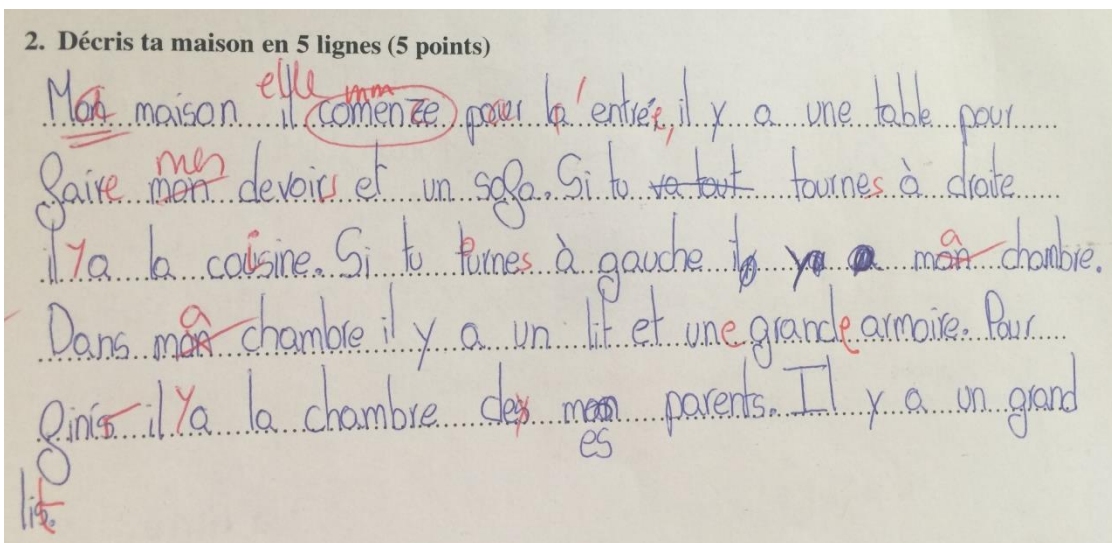 2. Décris ta maison en 5 lignes (5 points)
elle mm
Mon maison il comenze pour l'entrée, il y a une table pour
mes
faire mon devoirs et un sofa. Si tu va tout tournes à droite
il Ya la cousine. Si tu turnes à gauche il y a mon chambre.
a
Dans mon chambre il y a un lit et une grande armoire. Pour
a
finis il Ya la chambre des mon parents. Il y a un grand
es
lit.